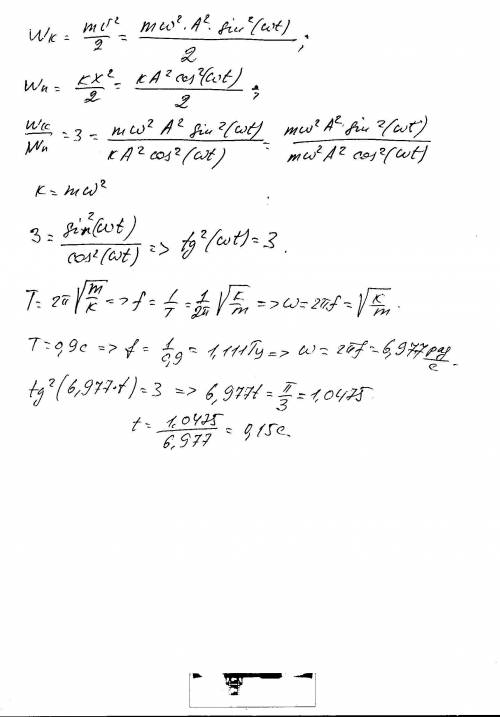 Wк = mυ²/2 = mω²·A²·sin²(ωt)/2;
Wп = кx²/2 = кA²cos²(ωt)/2;
Wк/Wп = 3 = mω²A²sin²(ωt)/кA²cos²(ωt) = mω²A²sin²(ωt)/mω²A²cos²(ωt)
к = mω²
3 = sin²(ωt)/cos²(ωt) => tg²(ωt) = 3.
T = 2π√(m/к) => f = 1/T = 1/2π √(к/m) => ω = 2πf = √(к/m).
T = 0,9с => f = 1/0,9 = 1,111Гц => ω = 2πf = 6,977 рад/с.
tg²(6,977·t) = 3 => 6,977t = π/3 = 1,0475
t = 1,0475/6,977 = 0,15с.